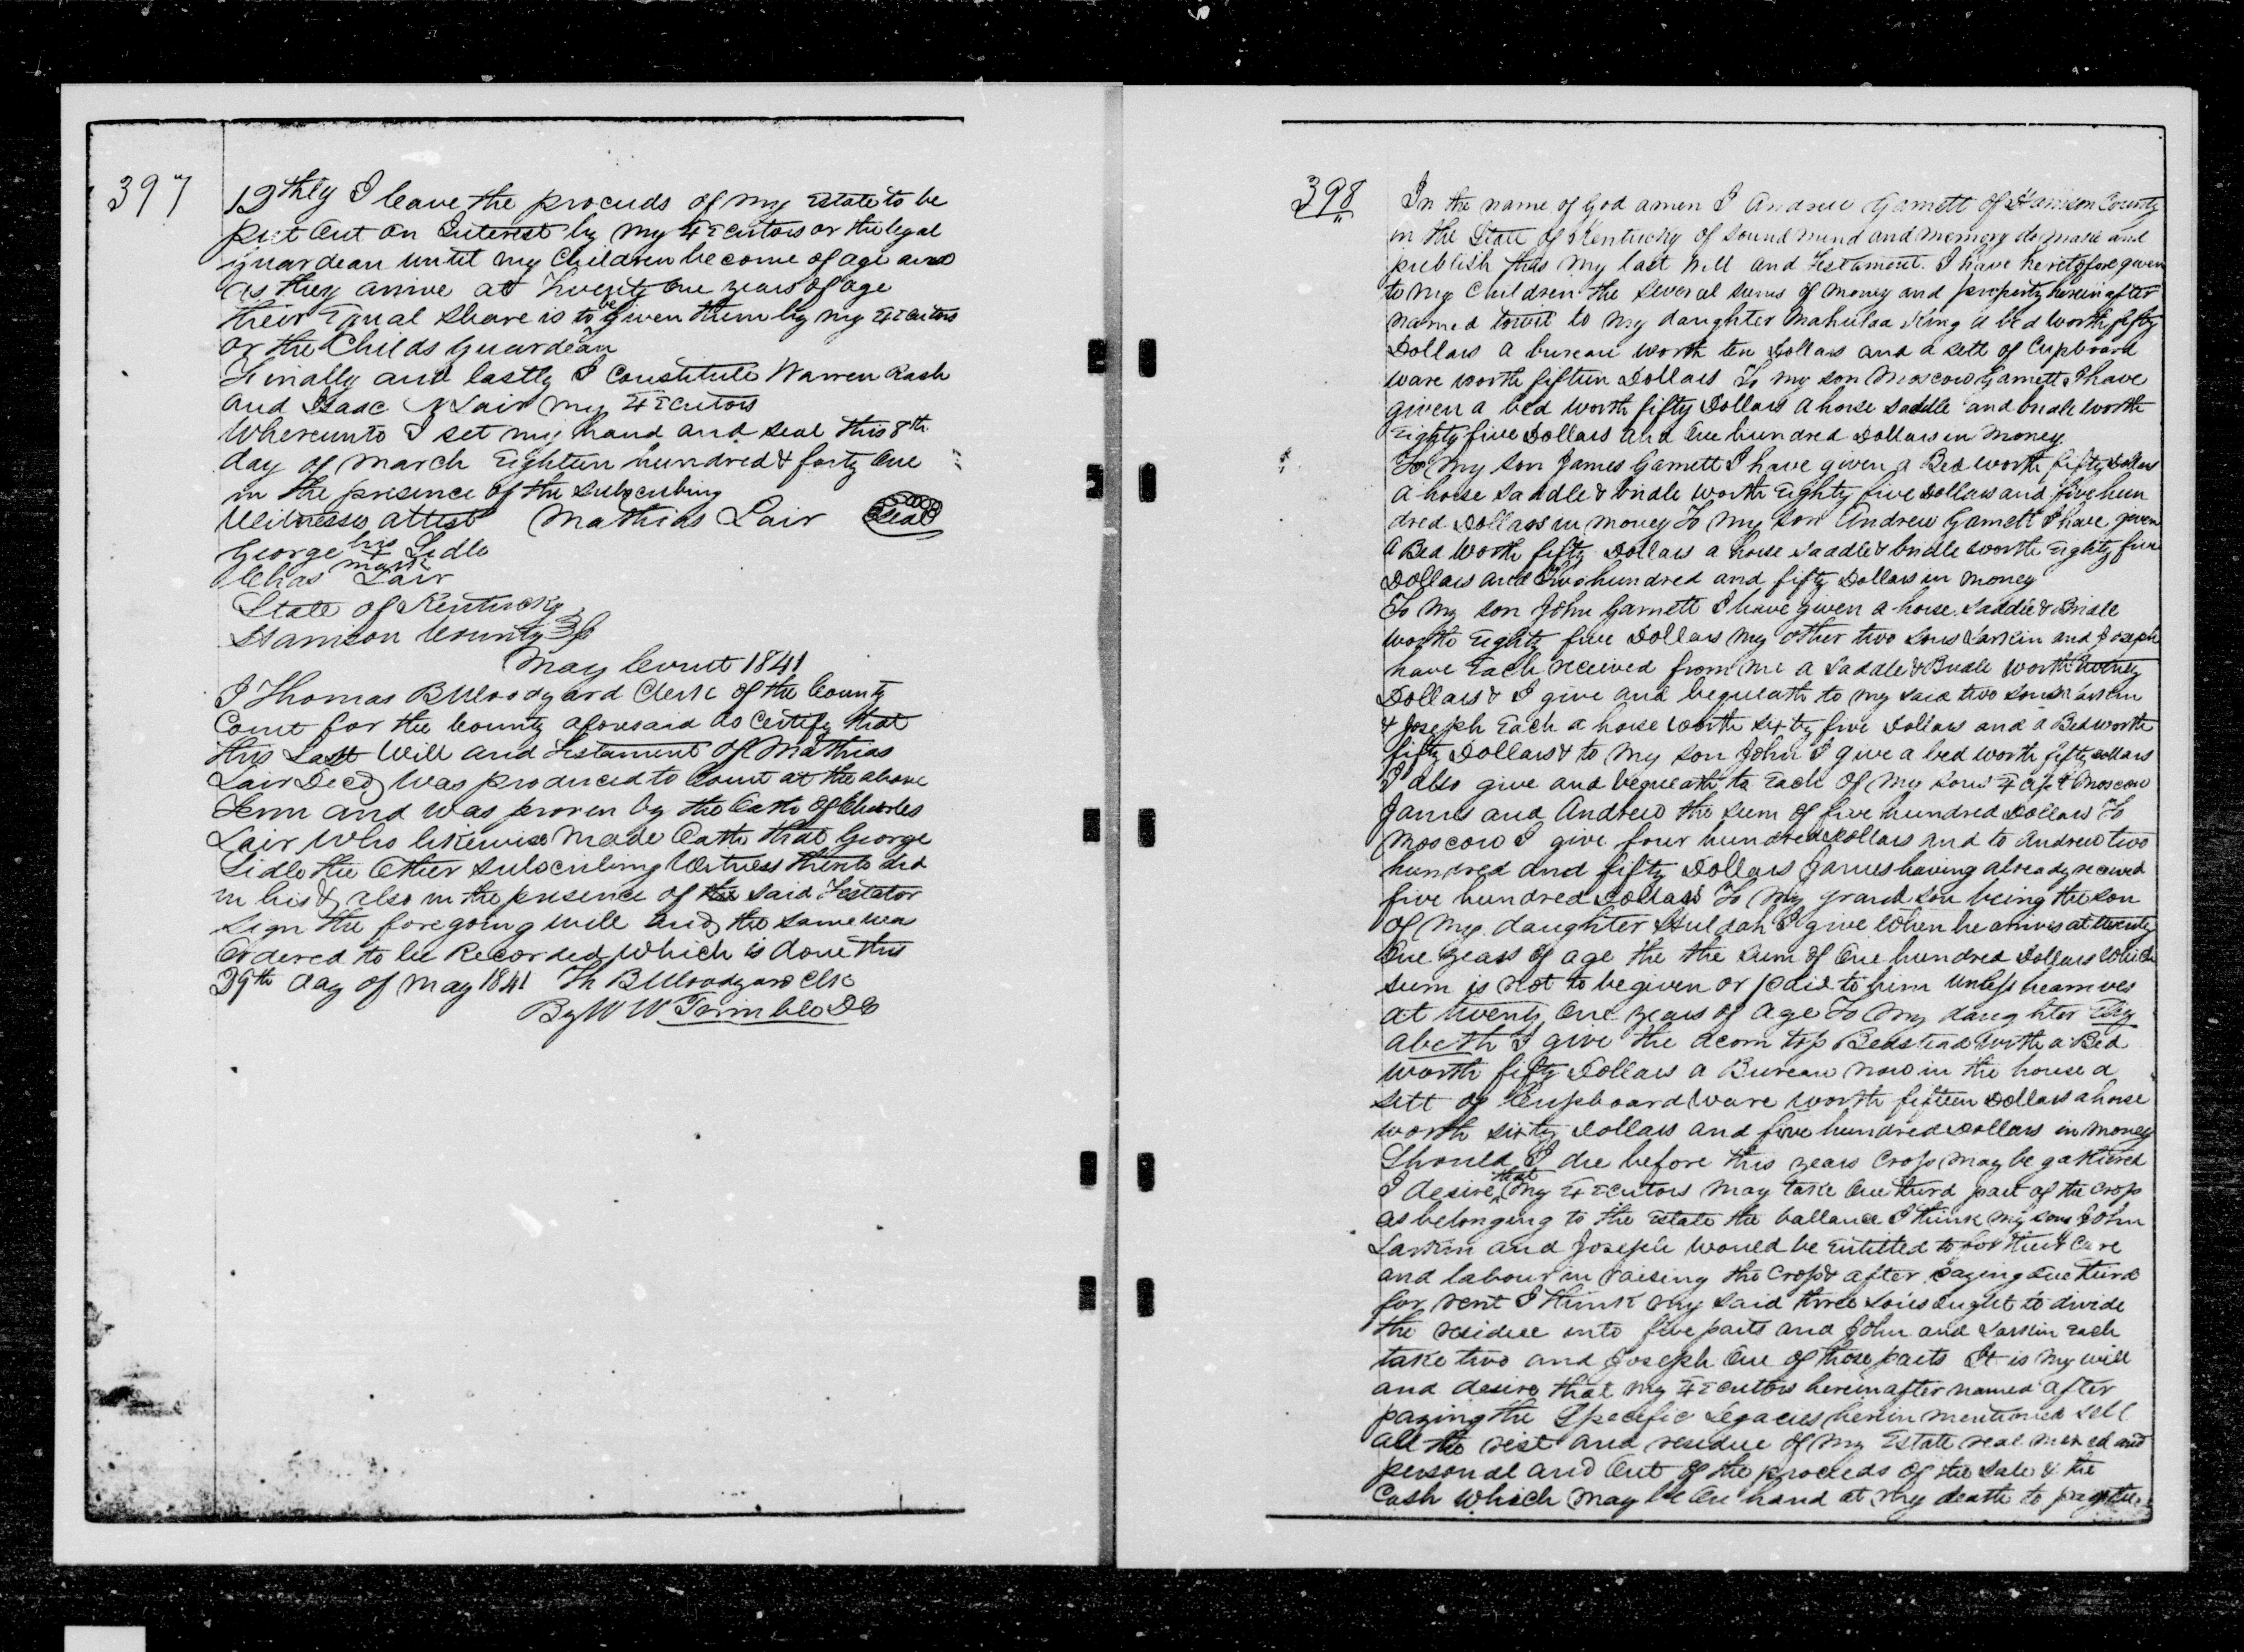 397
12thly I leave the proceeds of my Estate to be
put out on Interest by my Executors or the legal
guardean until my Children become of age and
as they arrive at Twenty One years of age
their Equal share is to be given them by my Executors
or the Childs Guardean
Finally and lastly I Constitute Warren Rash
and Isaac N Lair my Executors
Whereunto I set my hand and seal this 8th
day of March Eighteen hundred & forty One
in the presence of the subscribing
Witnesses attest Mathias Lair Seal
George his X mark Lidle
Chas Lair
State of Kentucky
Harrison County Sct
May Court 1841
I Thomas B Woodyard Clerk of the County
Court for the County aforesaid do Certify that
this Last Will and Testament of Mathias
Lair Decd was produced to Court at the above
Term and was proven by the Oath of Charles
Lair Who likewise Made Oath that George
Lidle the Other subscribing Witness thereto did
in his & also in the presence of the said Testator
sign the foregoing will and the same was
Ordered to be Recorded which is done this
29th day of May 1841 Th B Woodyard Clk
By W W Trimble DC
398
In the name of God amen I Andrew Garnett of Harrison County
in the State of Kentucky of sound mind and memory do make and
publish this my last Will and Testament. I have heretofore given
to my Children the several sums of money and property hereinafter
named towit to my daughter Mahulda King a bed worth fifty
Dollars a bureau worth ten Dollars and a sett of Cupboard
ware worth fifteen Dollars To my son Moscow Garnett I have
given a bed worth fifty Dollars a horse saddle and bridle worth
Eighty five Dollars and One hundred Dollars in Money
To My son James Garnett I have given a Bed worth fifty Dollars
a horse saddle & bridle worth Eighty five Dollars and five hun
dred Dollars in money To my son Andrew Garnett I have given
a Bed Worth fifty Dollars a horse saddle & bridle worth Eighty five
Dollars and Two hundred and fifty Dollars in money
To My son John Garnett I have given a horse saddle & Bridle
worth Eighty five Dollars my other two sons Larkin and Joseph
have Each received from me a saddle & Bridle worth twenty
Dollars & I give and bequeath to my said two sons Larkin
& Joseph Each a horse worth sixty five Dollars and a Bed worth
fifty Dollars & to my son John I give a bed worth fifty Dollars
I also give and bequeath to Each of my sons Except Moscow
James and Andrew the sum of five hundred Dollars To
Moscow I give four hundred Dollars and to Andrew two
hundred and fifty Dollars James having already received
five hundred Dollars To My grand son being the son
of My daughter Huldah I give When he arrives at twenty
One years of age the the sum of One hundred Dollars Which
sum is not to be given or paid to him Unless he arrives
at twenty One years of age To My daughter Eliz
abeth I give the acorn top Bedstead with a Bed
worth fifty Dollars a Bureau now in the house a
sett of Cupboard Ware worth fifteen Dollars a horse
worth sixty Dollars and five hundred Dollars in money
Should I die before this years Crop may be gathered
I desire that my Executors may take One third part of the crop
as belonging to the Estate the ballance I think my sons John
Larkin and Joseph would be Entitled to for their Care
and labour in raising the Crop & after paying One third
for rent I think my said three sons Ought to divide
the residue into five parts and John and Larkin Each
take two and Joseph One of those parts It is My will
and desire that my Executors hereinafter named after
paying the Specific Legacies herein mentioned sell
all the rest and residue of my Estate real mixed and
personal and Out of the proceeds of the sale & the
Cash Which may be On hand at my death to pay the